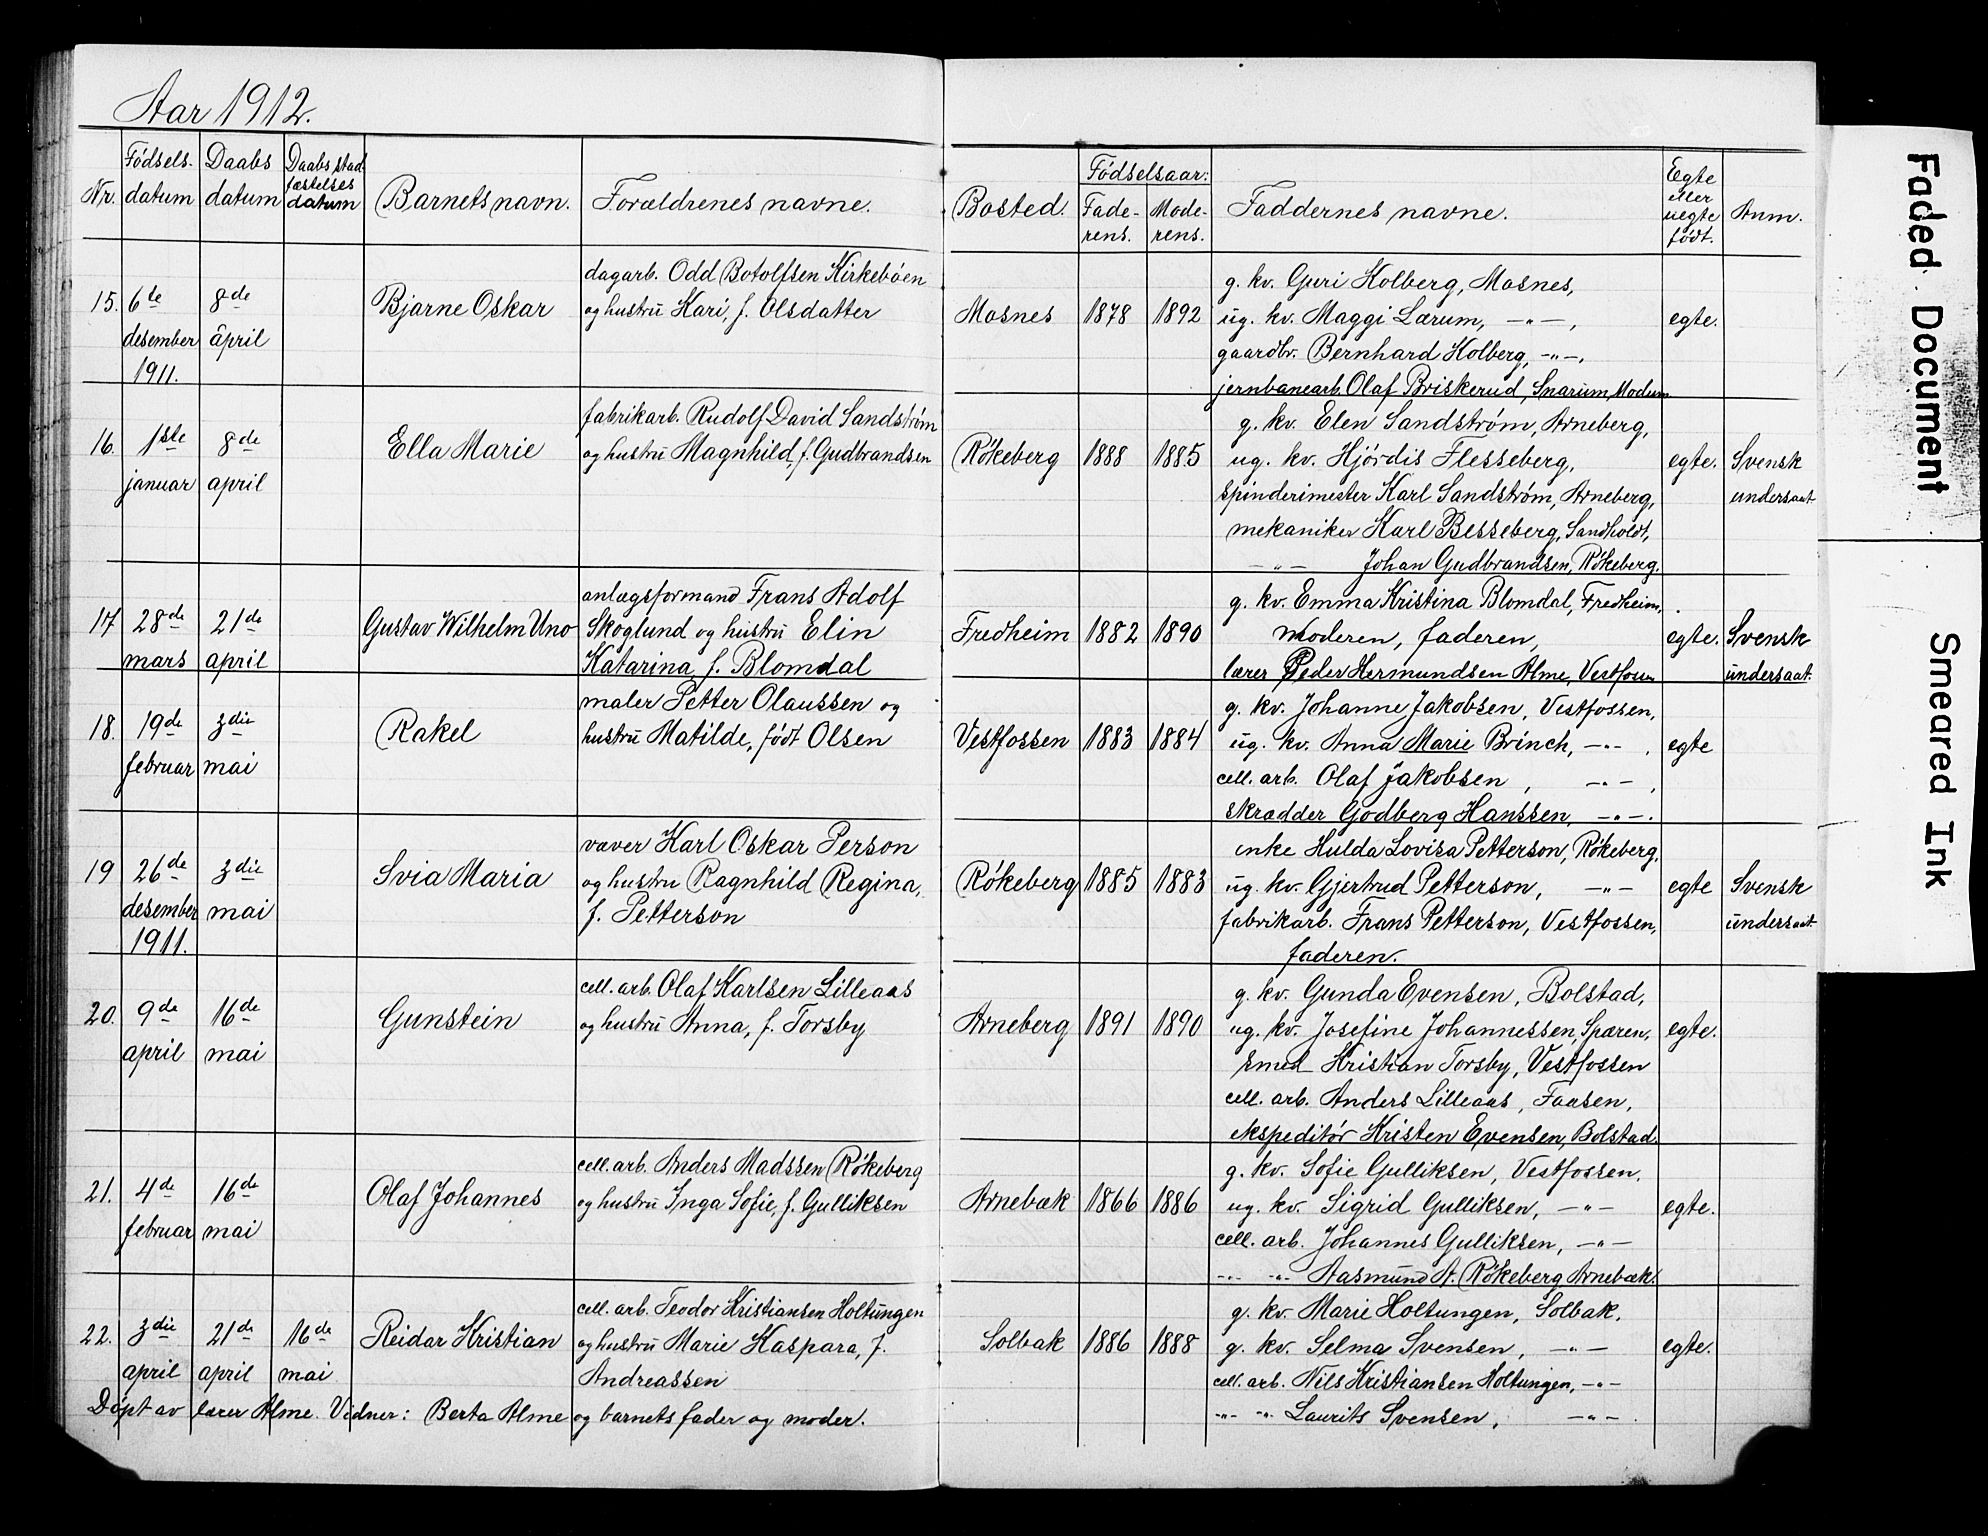 Aar 1912.
Nr. Fødsels-datum Daabs datum Daabs stadfæstelses datum Barnets navn. Forældrenes navne. Bosted. Fødselsaar: Faderens. Moderens. Faddernes navne. Egte eller uegte født. Anm.
15. 6te desember 1911. 8de april Bjarne Oskar
dagarb. Odd Botolfsen Kirkebøen
og hustru Kari, f. Olsdatter
Mosnes 1878 1892
g. kv. Guri Kolberg, Mosnes,
ug. kv. Maggi Lærum, —"—,
gaardbr. Bernhard Kolberg, —"—,
jernbanearb. Olaf Briskerud, Snarum, Modum
egte.
16. 1ste januar 8de april Ella Marie
fabrikarb. Rudolf David Sandstrøm
og hustru Magnhild, f. Gudbrandsen
Røkeberg 1888 1885
g. kv. Elen Sandstrøm, Arneberg,
ug. kv. Hjørdis Flesseberg,
spinderimester Karl Sandstrøm, Arneberg,
mekaniker Karl Besseberg, Sandholdt,
—"— Johan Gudbrandsen, Røkeberg.
egte. Svensk undersaat
17 28de mars 21de april Gustav Wilhelm Uno
anlægsformand Frans Adolf
Skoglund og hustru Elin
Katarina f. Blomdal
Fredheim 1882 1890
g. kv. Emma Kristina Blomdal, Fredheim,
moderen, faderen,
lærer Peder Hermundsen Alme, Vestfossen
egte. Svensk undersaat.
18. 19de februar 3die mai Rakel
maler Petter Olaussen og
hustru Matilde, født Olsen
Vestfossen 1883 1884
g. kv. Johanne Jakobsen, Vestfossen,
ug. kv. Anna Marie Brinch, —"—,
cell. arb. Olaf Jakobsen, —"—,
skrædder Godberg Hanssen, —"—.
egte
19 26de desember 1911. 3die mai Svia Maria
væver Karl Oskar Person
og hustru Ragnhild Regina,
f. Petterson
Røkeberg 1885 1883
enke Hulda Lovisa Petterson, Røkeberg.
ug. kv. Gjertrud Petterson, —"—
fabrikarb. Frans Petterson, Vestfossen,
faderen.
egte Svensk undersaat
20. 9de april 16de mai Gunstein
cell. arb. Olaf Karlsen Lilleaas
og hustru Anna, f. Torsby
Arneberg 1891 1890
g. kv. Gunda Evensen, Bolstad,
ug. kv. Josefine Johannessen, Spæren,
smed Kristian Torsby, Vestfossen
cell. arb. Anders Lilleaas, Faasen,
ekspeditør Kristen Evensen, Bolstad.
egte.
21. 4de februar 16de mai Olaf Johannes
cell. arb. Anders Madssen Røkeberg
og hustru Inga Sofie, f. Gulliksen
Arnebæk 1866 1886
g. kv. Sofie Gulliksen, Vestfossen,
ug. kv. Sigrid Gulliksen, —"—
cell. arb. Johannes Gulliksen, —"—
—"— —"— Aasmund A. Røkeberg Arnebæk.
egte.
22. 3die april 21de april 16de mai Reidar Kristian
cell. arb. Teodor Kristiansen Holtungen
og hustru Marie Kaspara, f.
Andreassen
Solbak 1886 1888
g. kv. Marie Holtungen, Solbak.
g. kv. Selma Svensen, —"—
cell. arb. Nils Kristiansen Holtungen, —"—
—"— —"— Laurits Svensen, —"—.
egte.
Døpt av lærer Alme. Vidner: Berta Alme og barnets fader og moder.
Faded Document
Smeared Ink